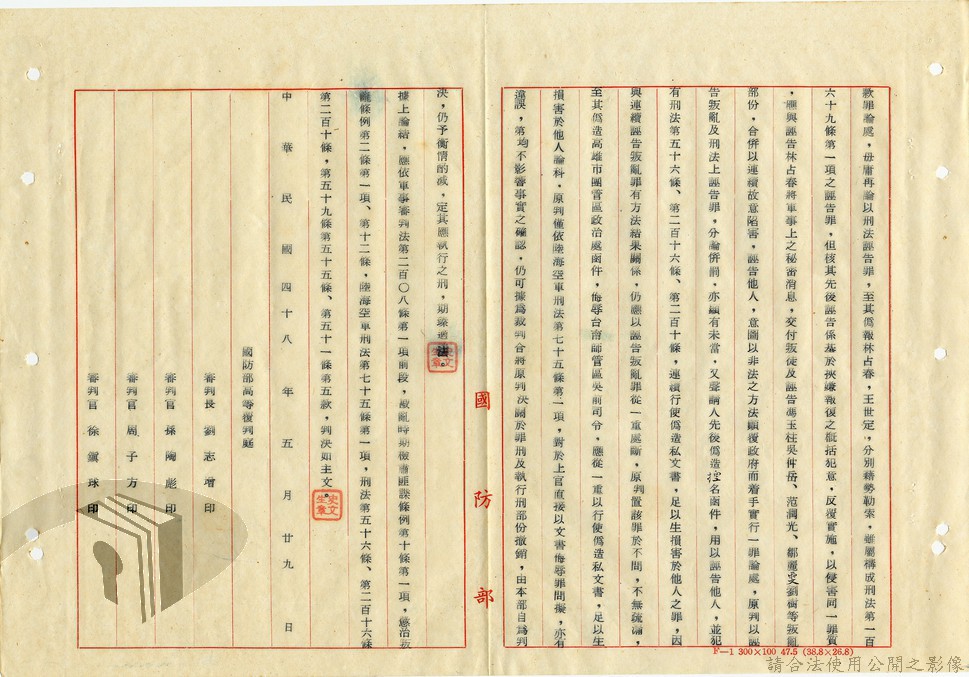 款罪論處，毋庸再論以刑法誣告罪，至其僞報林占春，王世定，分別藉勢勒索，雖屬構成刑法第一百
六十九條第一項之誣告罪，但核其先後誣告係基於挾嫌報復之概括犯意，反覆實施，以侵害同一罪質
，應與誣告林占春將軍事上之秘密消息，交付叛徒及誣告馮玉柱吳仲岳、范潤光、鄒麗雯劉衡等叛亂
部份，合併以連續故意陷害，誣告他人，意圖以非法之方法顚覆政府而着手實行一罪論處，原判以誣
告叛亂及刑法上誣告罪，分論併罰，亦顯有未當，又聲請人先後僞造控名函件，用以誣告他人，並犯
有刑法第五十六條、第二百十六條、第二百十條，連續行使僞造私文書，足以生損害於他人之罪，因
與連續誣告叛亂罪有方法結果關係，仍應以誣告叛亂罪從一重處斷，原判置該罪於不問，不無疏漏，
至其僞造高雄市團管區政治處函件，侮辱台南師管區吳前司令，應從一重以行使僞造私文書，足以生
損害於他人論科，原判僅依陸海空軍刑法第七十五條第一項，對於上官直接以文書侮辱罪問擬，亦有
違誤，第均不影響事實之確認，仍可據爲裁判合將原判決關於罪刑及執行刑部份撤銷，由本部自爲判
國防部
決，仍予衡情酌減，定其應執行之刑，期臻適法。
據上論結，應依軍事審判法第二百〇八條第一項前段，戡亂時期檢肅匪諜條例第十條第一項，懲治叛
亂條例第二條第一項、第十二條，陸海空軍刑法第七十五條第一項，刑法第五十六條、第二百十六條
第二百十條，第五十九條第五十五條、第五十一條第五款，判決如主文。
史文生章
中華民國四十八年五月廿九日
國防部高等覆判庭
審判長 劉志增 印
審判官 孫陶彪 印
審判官 周子方 印
審判官 徐鎭球 印
F—1 300×100 47.5 (38.8×26.8)
請合法使用公開之影像